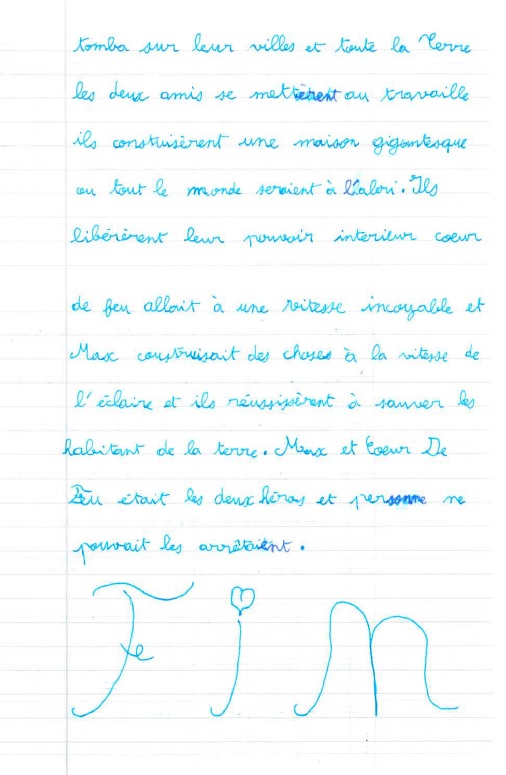 tomba sur leur villes et toute la Terre
les deux amis se mettèrent au travaille
ils construisèrent une maison gigantesque
ou tout le monde seraient à l'abri. Ils
libérèrent leur pouvoir interieur coeur
de feu allait à une vitesse incoyable et
Max construisait des choses à la vitesse de
l'éclaire et ils réussisèrent à sauver les
habitant de la terre. Max et Coeur De
Feu était les deux héros et personne ne
pouvait les arrêtaient.
Fin